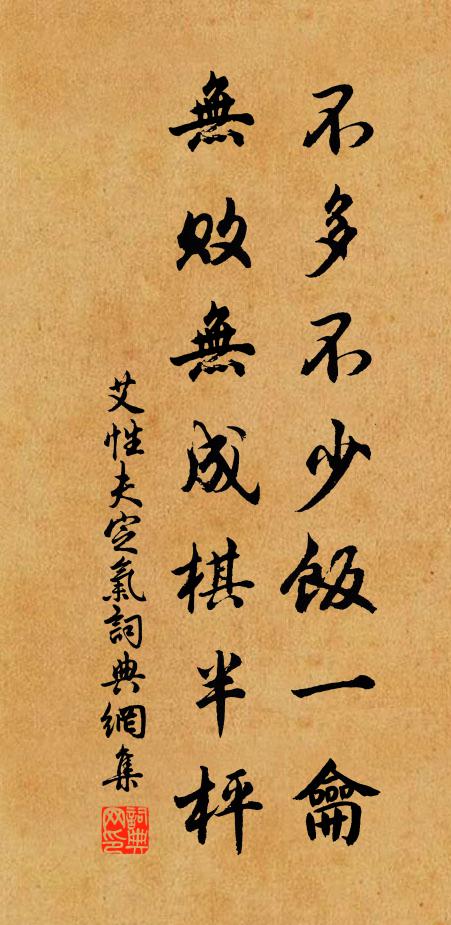 不多不少飯一龠
無敗無成棋半枰
艾性夫定氣詞典網集
詞典網印